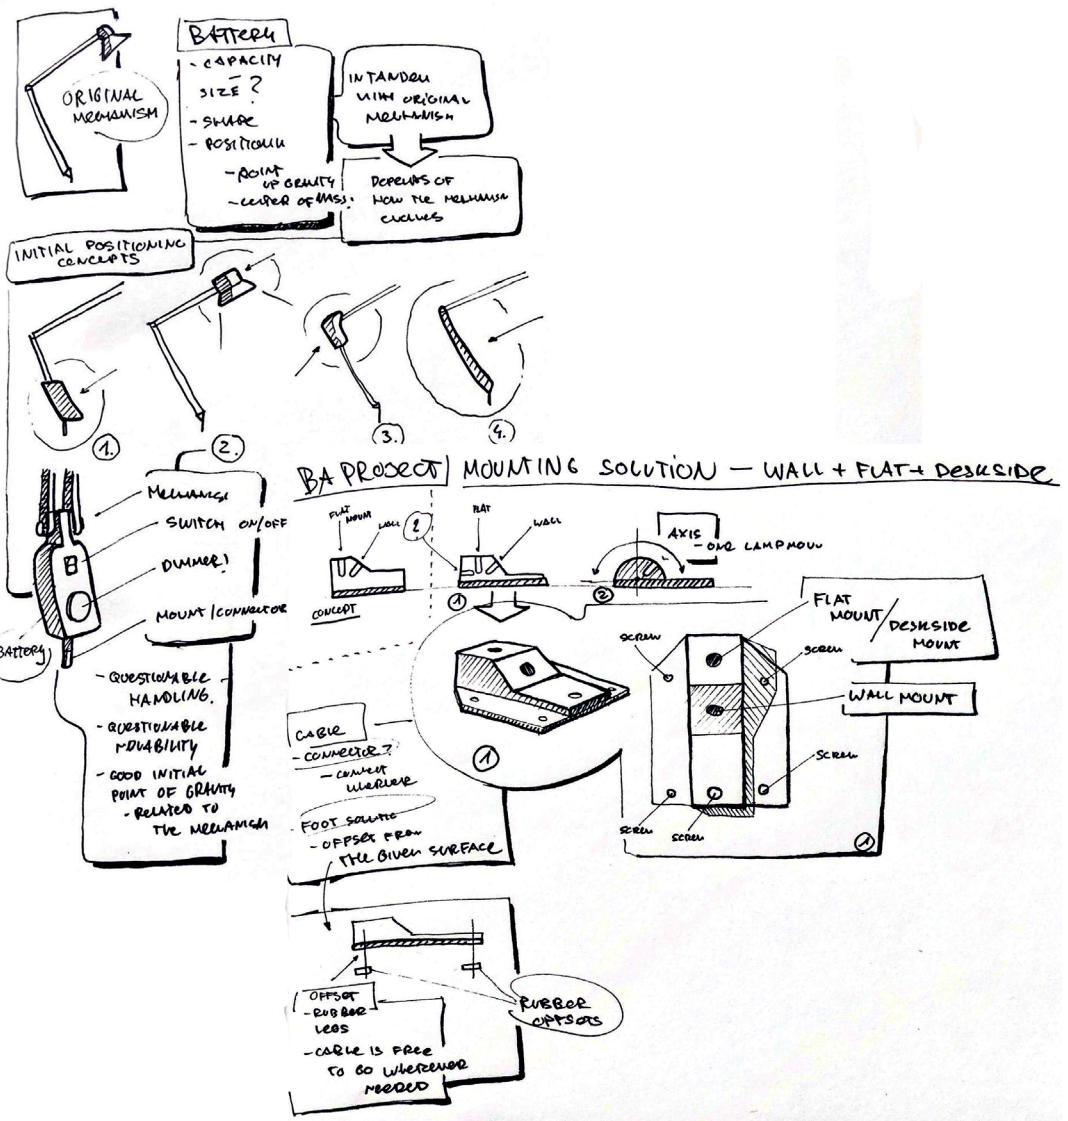 ORIGINAL
MECHANISM
BATTERY
- CAPACITY
SIZE?
- SHAPE
- POSITIONIN
- POINT
OF GRAVITY
- CENTER OF MASS?
IN TANDEM
WITH ORIGINAL
MECHANISM
DEPENDS OF
HOW THE MECHANISM
EVOLVES
INITIAL POSITIONING
CONCEPTS
1.
2.
3.
4.
MECHANISM
SWITCH ON/OFF
DIMMER!
MOUNT/CONNECTOR
BATTERY
- QUESTIONABLE
HANDLING.
- QUESTIONABLE
MOVABILITY
- GOOD INITIAL
POINT OF GRAVITY
- RELATED TO
THE MECHANISM
BA PROJECT MOUNTING SOLUTION - WALL + FLAT + DESKSIDE
FLAT
MOUNT
WALL
CONCEPT
2
FLAT
WALL
1
AXIS
- ONE LAMP MOUN
2
1
FLAT
MOUNT / DESKSIDE
MOUNT
WALL MOUNT
SCREW
SCREW
SCREW
SCREW
SCREW
1
CABLE
- CONNECTOR?
- CONNECT
WHEREVER
FOOT SOLUTIO
- OFFSET FROM
THE GIVEN SURFACE
OFFSET
- RUBBER
LEGS
- CABLE IS FREE
TO GO WHEREVER
NEEDED
RUBBER
OFFSETS